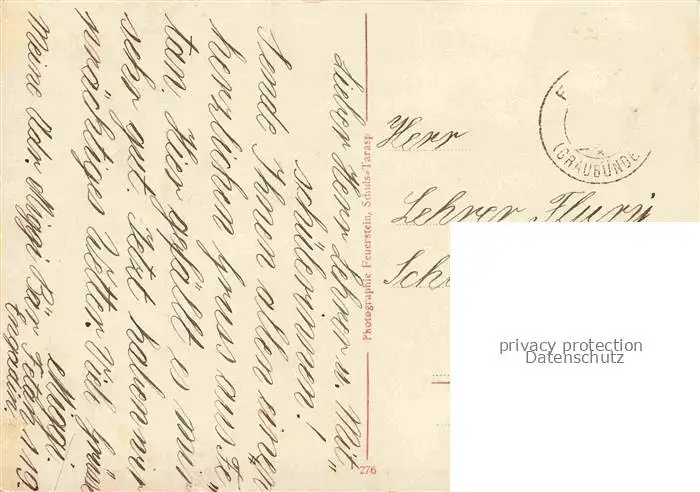 Lieber Herr Lehrer u. Mit-
schülerinnen!
Sende Ihnen allen einen
herzlichen Gruss aus Fe-
tan. Hier gefällt es mir
sehr gut. Jetzt haben wir
prächtiges Wetter. Viel Grüsse
Miggi.
Meine Adr. Miggi Bär Fetan 119.
Engadin.
Photographie Feuerstein, Schuls-Tarasp
276
Herr
Lehrer Flury
Sch
F
(GRAUBÜNDE
privacy protection
Datenschutz